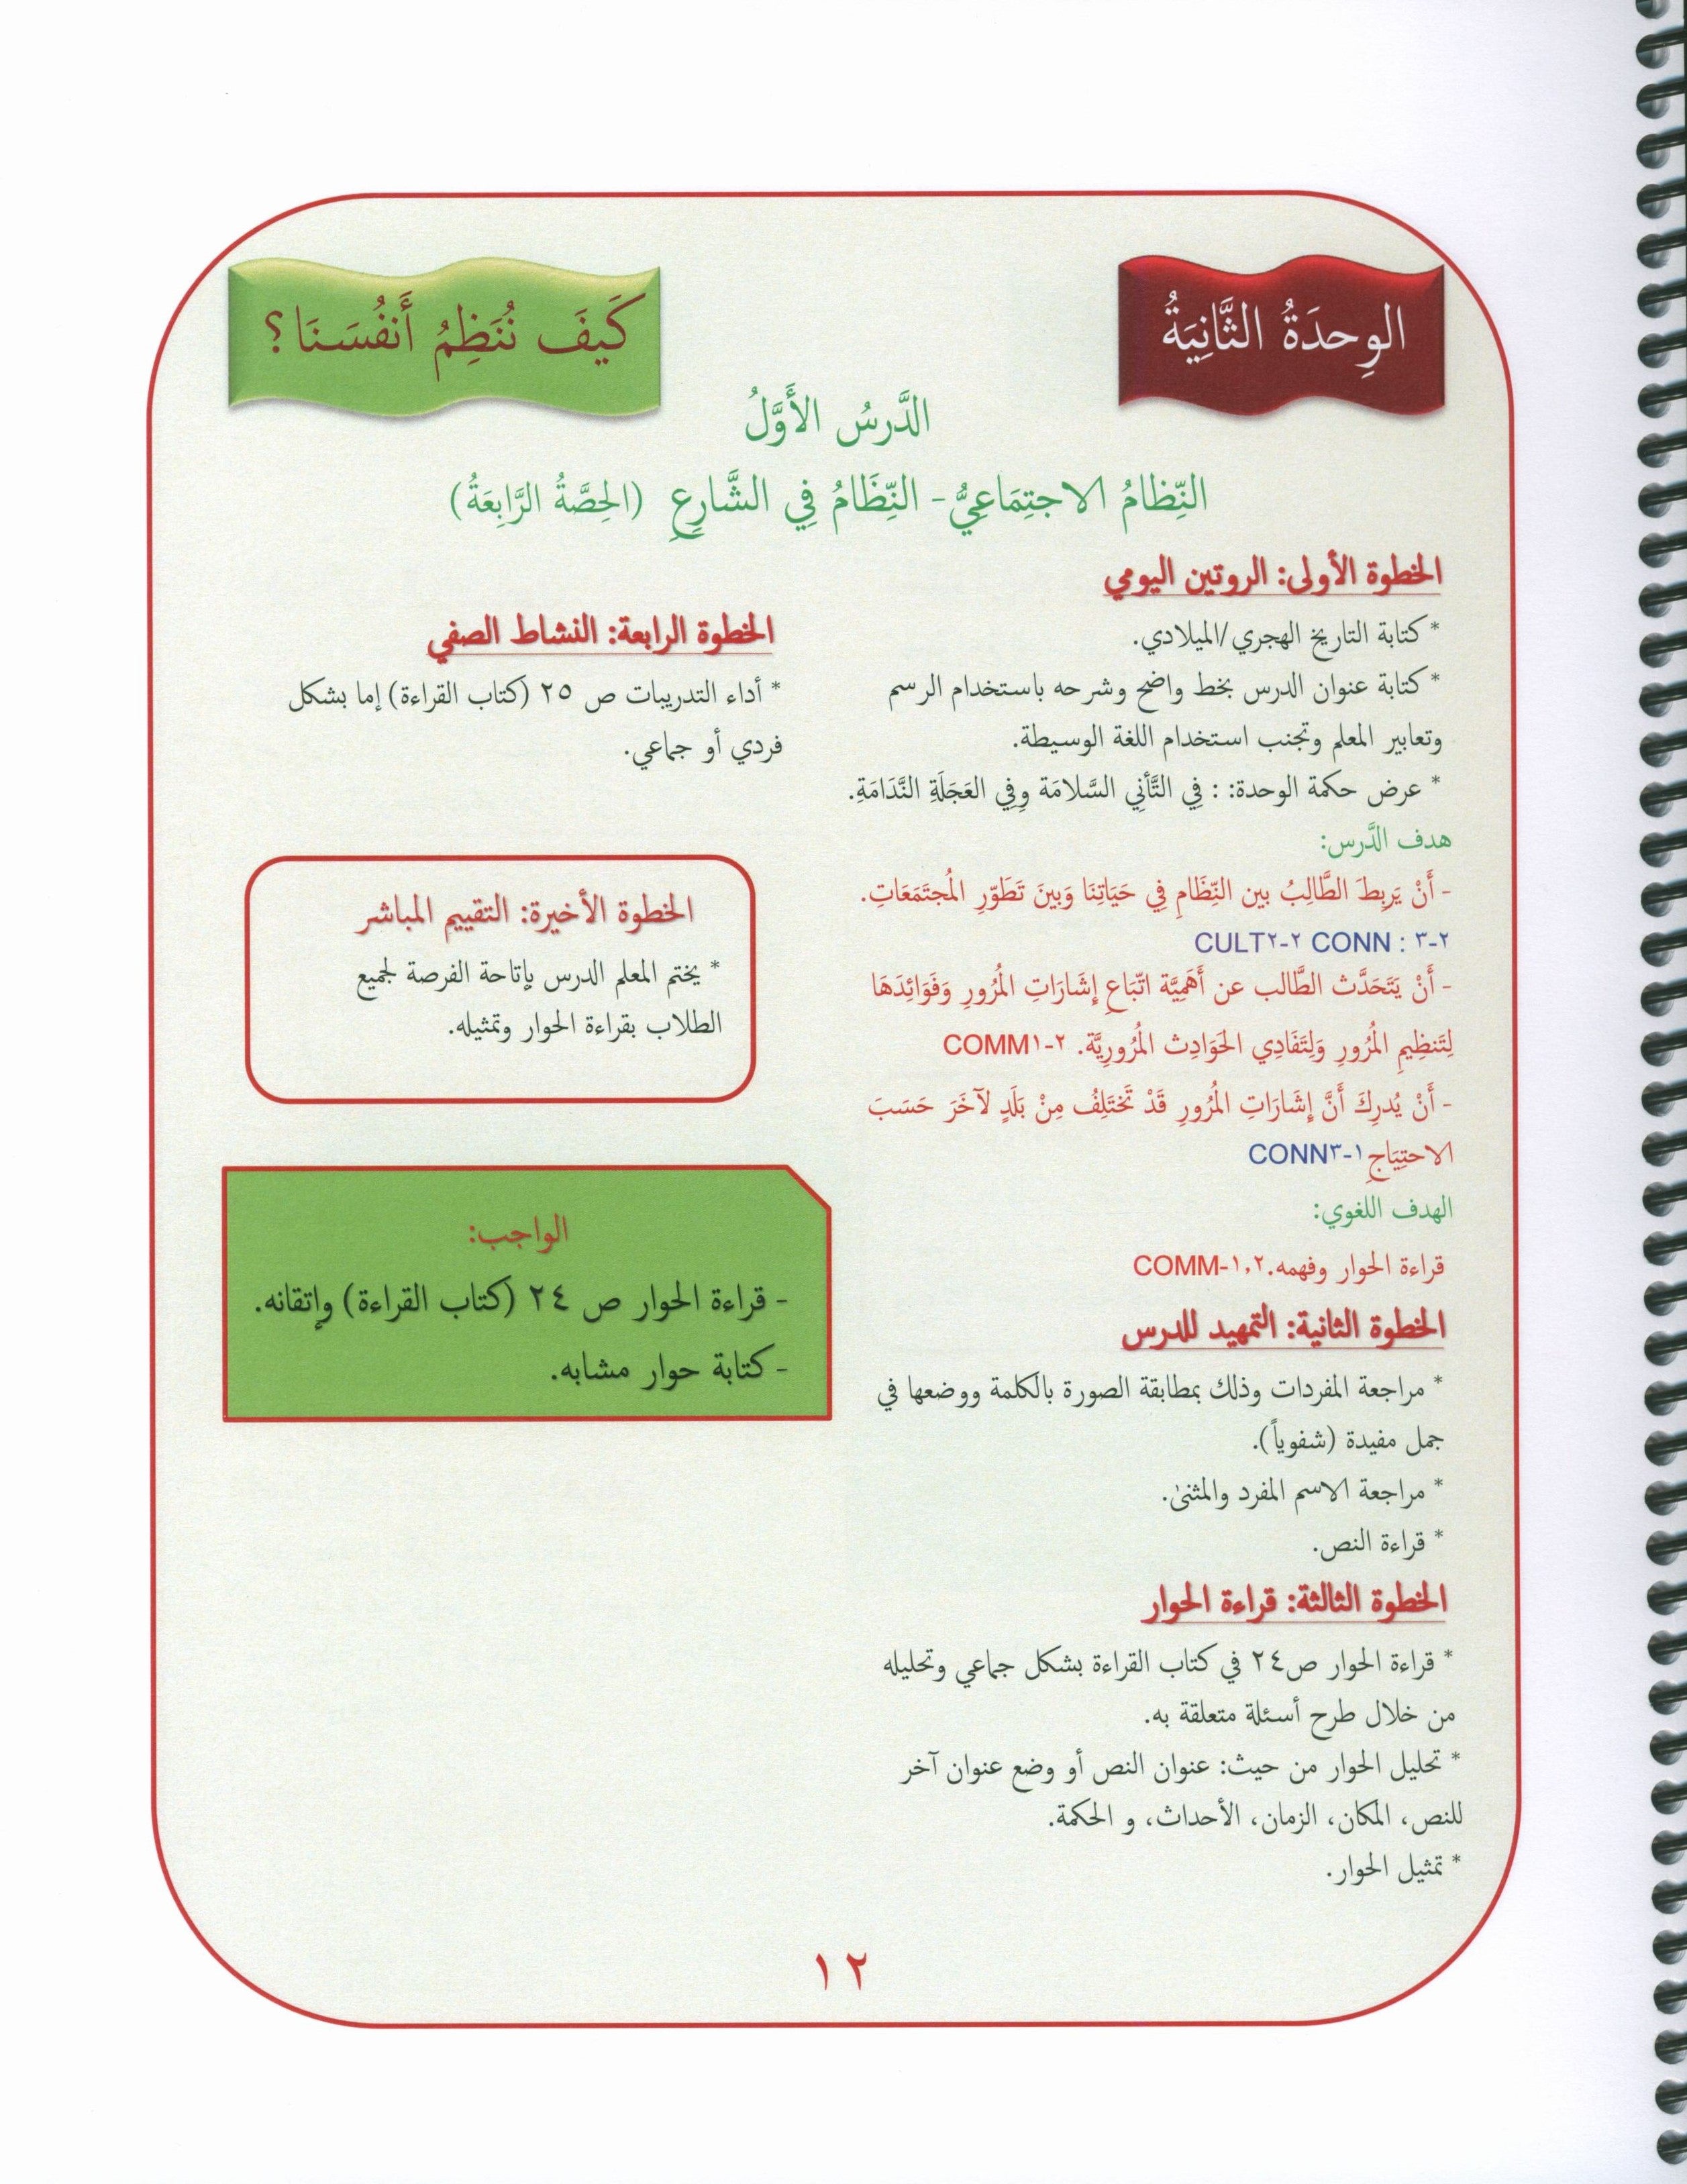 الوِحدَةُ الثَّانِيَةُ
كَيفَ نُنَظِمُ أَنفُسَنَا؟
الدَّرسُ الأَوَّلُ
النِّظامُ الاجتِمَاعِيُّ - النِّظَامُ فِي الشَّارِعِ (الحِصَّةُ الرَّابِعَةُ)
الخطوة الأولى: الروتين اليومي
* كتابة التاريخ الهجري/الميلادي.
* كتابة عنوان الدرس بخط واضح وشرحه باستخدام الرسم
وتعابير المعلم وتجنب استخدام اللغة الوسيطة.
* عرض حكمة الوحدة: : فِي التَّأنِي السَّلامَة وفِي العَجَلَةِ النَّدَامَةِ.
هدف الدَّرس:
- أَنْ يَربِطَ الطَّالِبُ بين النِّظَامِ فِي حَيَاتِنَا وَبينَ تَطَوّرِ المُجتَمَعَاتِ.
CULT٢-٢ CONN : ٣-٢
- أَنْ يَتَحَدَّث الطَّالب عن أَهَمِيَّة اتّبَاعِ إِشَارَاتِ المُرُورِ وَفَوَائِدَهَا
لِتَنظِيمِ المُرُورِ وَلِتَفَادِي الحَوَادِث المُرُورِيَّة. COMM١-٢
- أَنْ يُدرِكَ أَنَّ إِشَارَاتِ المُرُورِ قَدْ تَختَلِفُ مِنْ بَلَدٍ لآخَرَ حَسَبَ
الاحتِيَاجِ CONN٣-١
الهدف اللغوي:
قراءة الحوار وفهمه. COMM-١,٢
الخطوة الثانية: التمهيد للدرس
* مراجعة المفردات وذلك بمطابقة الصورة بالكلمة ووضعها في
جمل مفيدة (شفوياً).
* مراجعة الاسم المفرد والمثنى.
* قراءة النص.
الخطوة الثالثة: قراءة الحوار
* قراءة الحوار ص٢٤ في كتاب القراءة بشكل جماعي وتحليله
من خلال طرح أسئلة متعلقة به.
* تحليل الحوار من حيث: عنوان النص أو وضع عنوان آخر
للنص، المكان، الزمان، الأحداث، و الحكمة.
* تمثيل الحوار.
الخطوة الرابعة: النشاط الصفي
* أداء التدريبات ص ٢٥ (كتاب القراءة) إما بشكل
فردي أو جماعي.
الخطوة الأخيرة: التقييم المباشر
* يختم المعلم الدرس بإتاحة الفرصة لجميع
الطلاب بقراءة الحوار وتمثيله.
الواجب:
- قراءة الحوار ص ٢٤ (كتاب القراءة) وإتقانه.
- كتابة حوار مشابه.
١٢